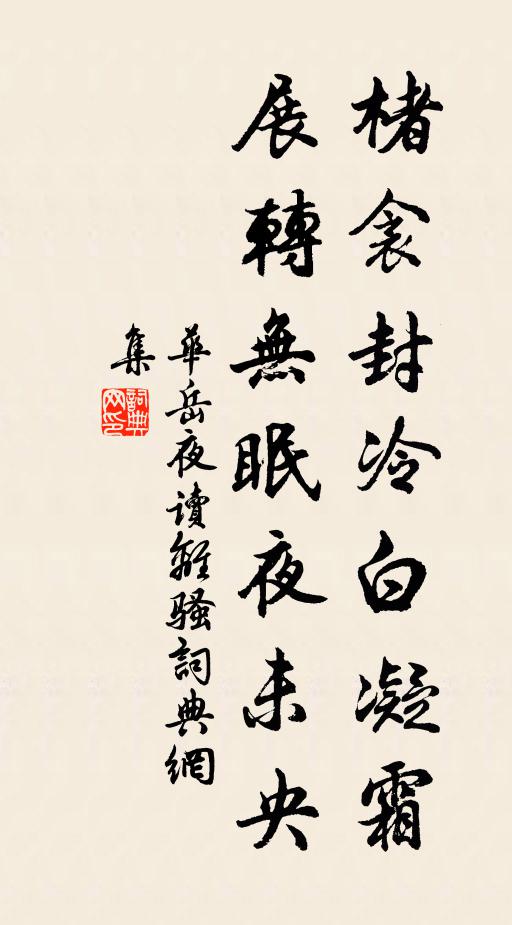 楮衾封冷白凝霜
展轉無眠夜未央
華岳夜讀離騷詞典網
集
詞典網印